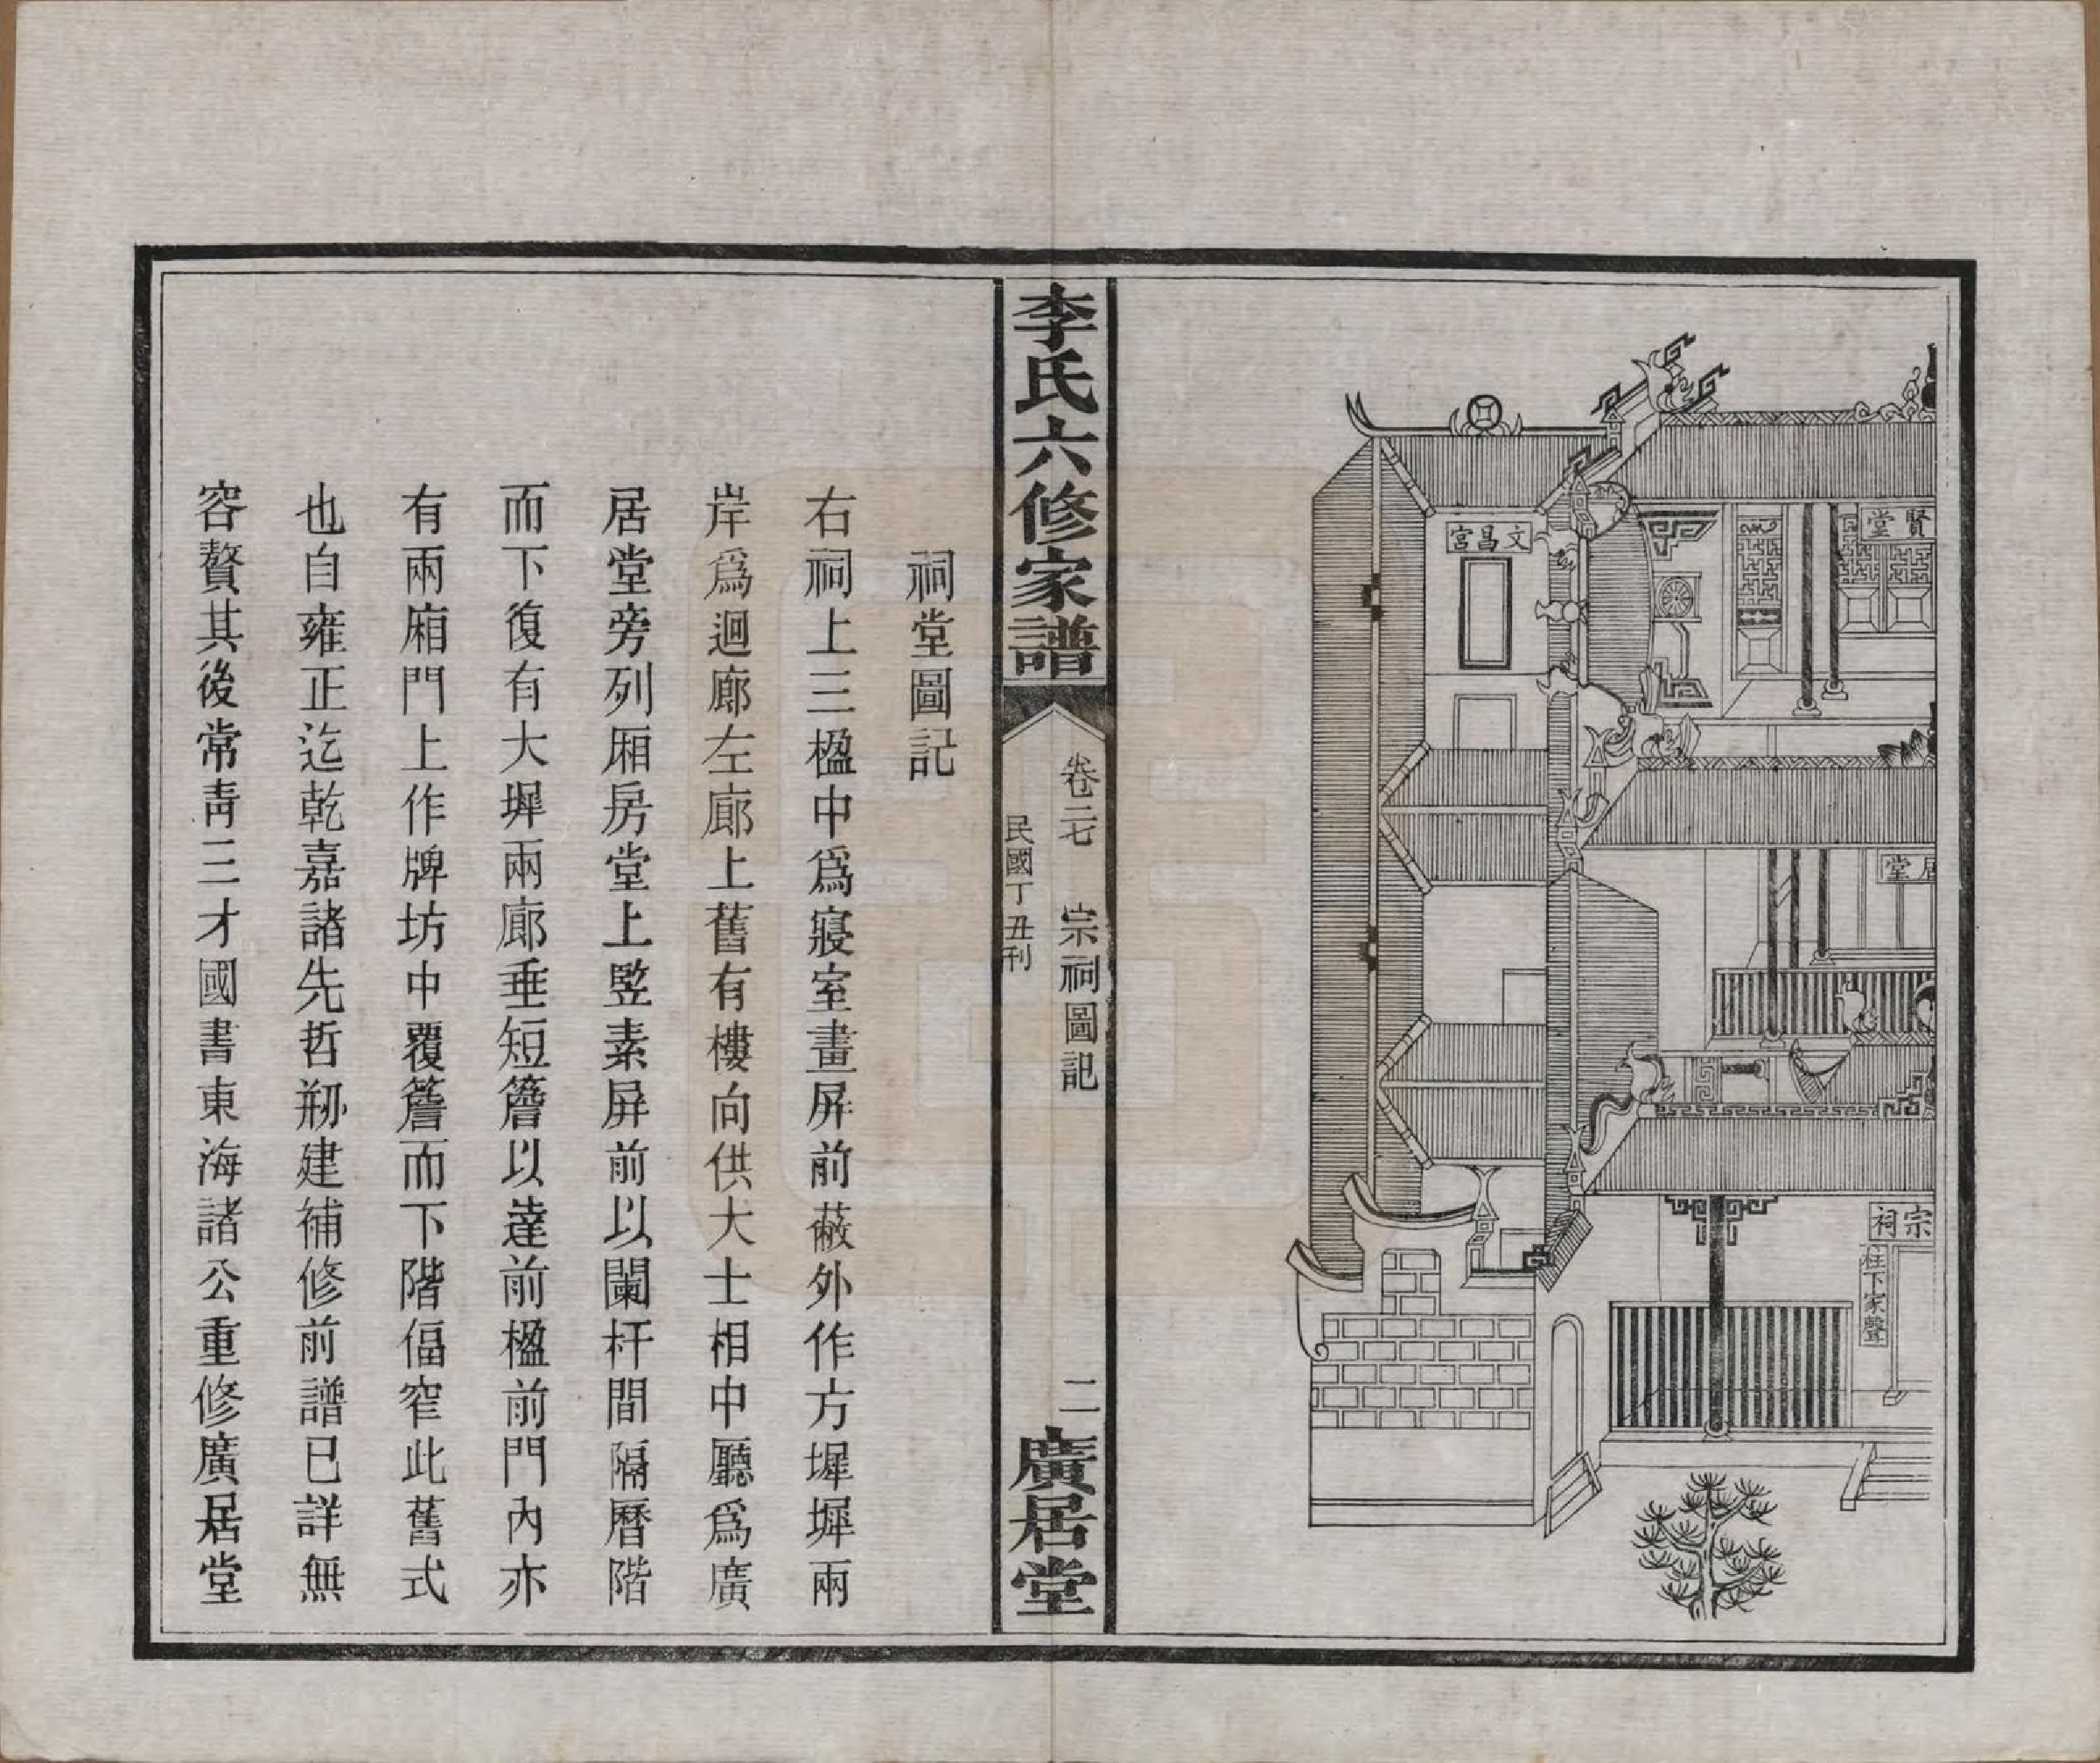 賢堂
文昌宮
居堂
宗祠
柱下家聲
李氏六修家譜
卷二七 宗祠圖記
二
民國丁丑刊
廣居堂
祠堂圖記
右祠上三楹中爲寢室畫屏前蔽外作方墀墀兩
岸爲迴廊左廊上舊有樓向供大士相中廳爲廣
居堂旁列厢房堂上竪素屏前以闌杆間隔曆階
而下復有大墀兩廊垂短簷以達前楹前門內亦
有兩廂門上作牌坊中覆簷而下階偪窄此舊式
也自雍正迄乾嘉諸先哲剏建補修前譜已詳無
容贅其後常靑三才國書東海諸公重修廣居堂